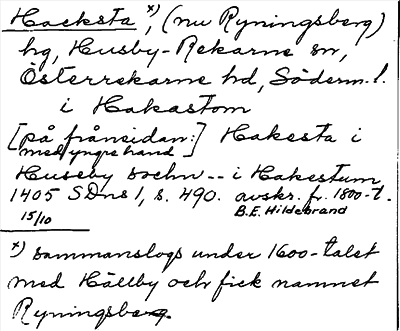 Hacksta x), (nu Ryningsberg)
hg, Husby-Rekarne sn,
Österrekarne hd, Söderm. l.
i Hakastom
[på frånsidan:] Hakesta i
med yngre hand
Huseby sochn -- i Hakestum
1405 SDns 1, s. 490. avskr. fr. 1800-t.
15/10 B.E. Hildebrand
x) sammanslogs under 1600-talet
med Hällby och fick namnet
Ryningsberg.